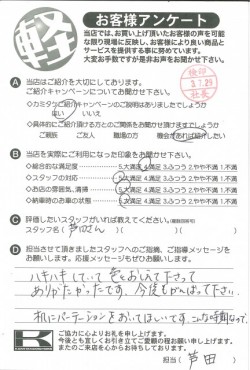 軽
お客様アンケート
当店では、お買い上げ頂いたお客様の声を可能
な限り現場に反映し、お客様により良い商品と
サービスを提供する事に努めています。
大変お手数ですが是非お声をお聞かせ下さい。
検印
5.7.29
社長
A 当店はご紹介を大切にしております。
ご紹介キャンペーンについてお聞かせ下さい。
◇カシタクご紹介キャンペーンのご説明はありましたでしょうか
はい いいえ
◇具体的にご紹介頂ける方とのご関係をお聞かせ頂けますでしょうか
ご親族 ご友人 職場の方 機会があれば紹介したい
B 当店を実際にご利用になった印象をお聞かせ下さい。
◇総合的な満足度 5.大満足 4.満足 3.ふつう 2.やや不満 1.不満
◇スタッフの対応 5.大満足 4.満足 3.ふつう 2.やや不満 1.不満
◇お店の雰囲気、清掃 5.大満足 4.満足 3.ふつう 2.やや不満 1.不満
◇納車時のお車の状態 5.大満足 4.満足 3.ふつう 2.やや不満 1.不満
C 評価したいスタッフがいれば教えてください。(複数回答可)
スタッフ名( 芦田さん )
D 担当させて頂きましたスタッフへのご指摘、ご指導メッセージをお
願いします。応援メッセージもぜひお願いします。
ハキハキしていて 色々おしえて下さって
ありがたかったです。今後もがんばって下さい。
机にパーテーションをおいてほしいです。こんな時期なので。
K
ご協力に心よりお礼を申し上げます。
今後とも宜しくお引き立てご愛顧の程お願い申し上げます。
またのご来店を心からお待ちしております。
担当( 芦田 )